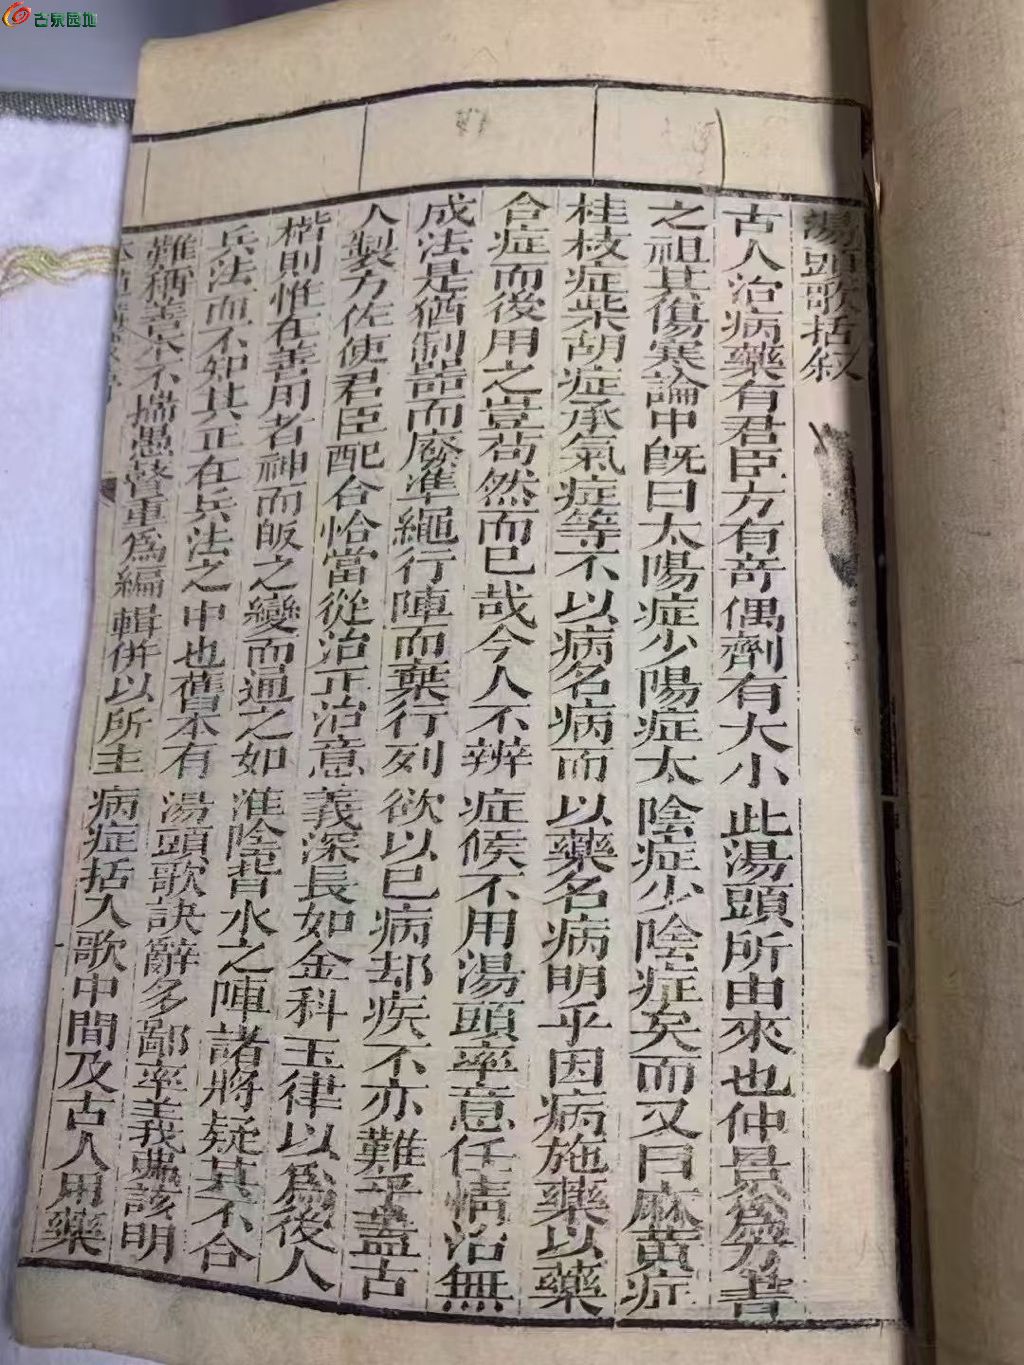 古泉园地
湯頭歌括叙
古人治病藥有君臣方有竒偶劑有大小此湯頭所由來也仲景爲方書
之祖其傷寒論中既曰太陽症少陽症太陰症少陰症矣而又曰麻黄症
桂枝症柴胡症承氣症等不以病名病而以藥名病明乎因病施藥以藥
合症而後用之豈苟然而已哉今人不辨症候不用湯頭率意任情治無
成法是猶制噐而廢準繩行陣而棄行列欲以已病却疾不亦難乎盖古
人製方佐使君臣配合恰當從治正治意義深長如金科玉律以爲後人
楷則惟在善用者神而明之變而通之如淮陰背水之陣諸將疑其不合
兵法而不知其正在兵法之中也舊本有湯頭歌訣辭多鄙率義弗該明
難稱善本不揣愚瞽重爲編輯併以所主病症括入歌中間及古人用藥